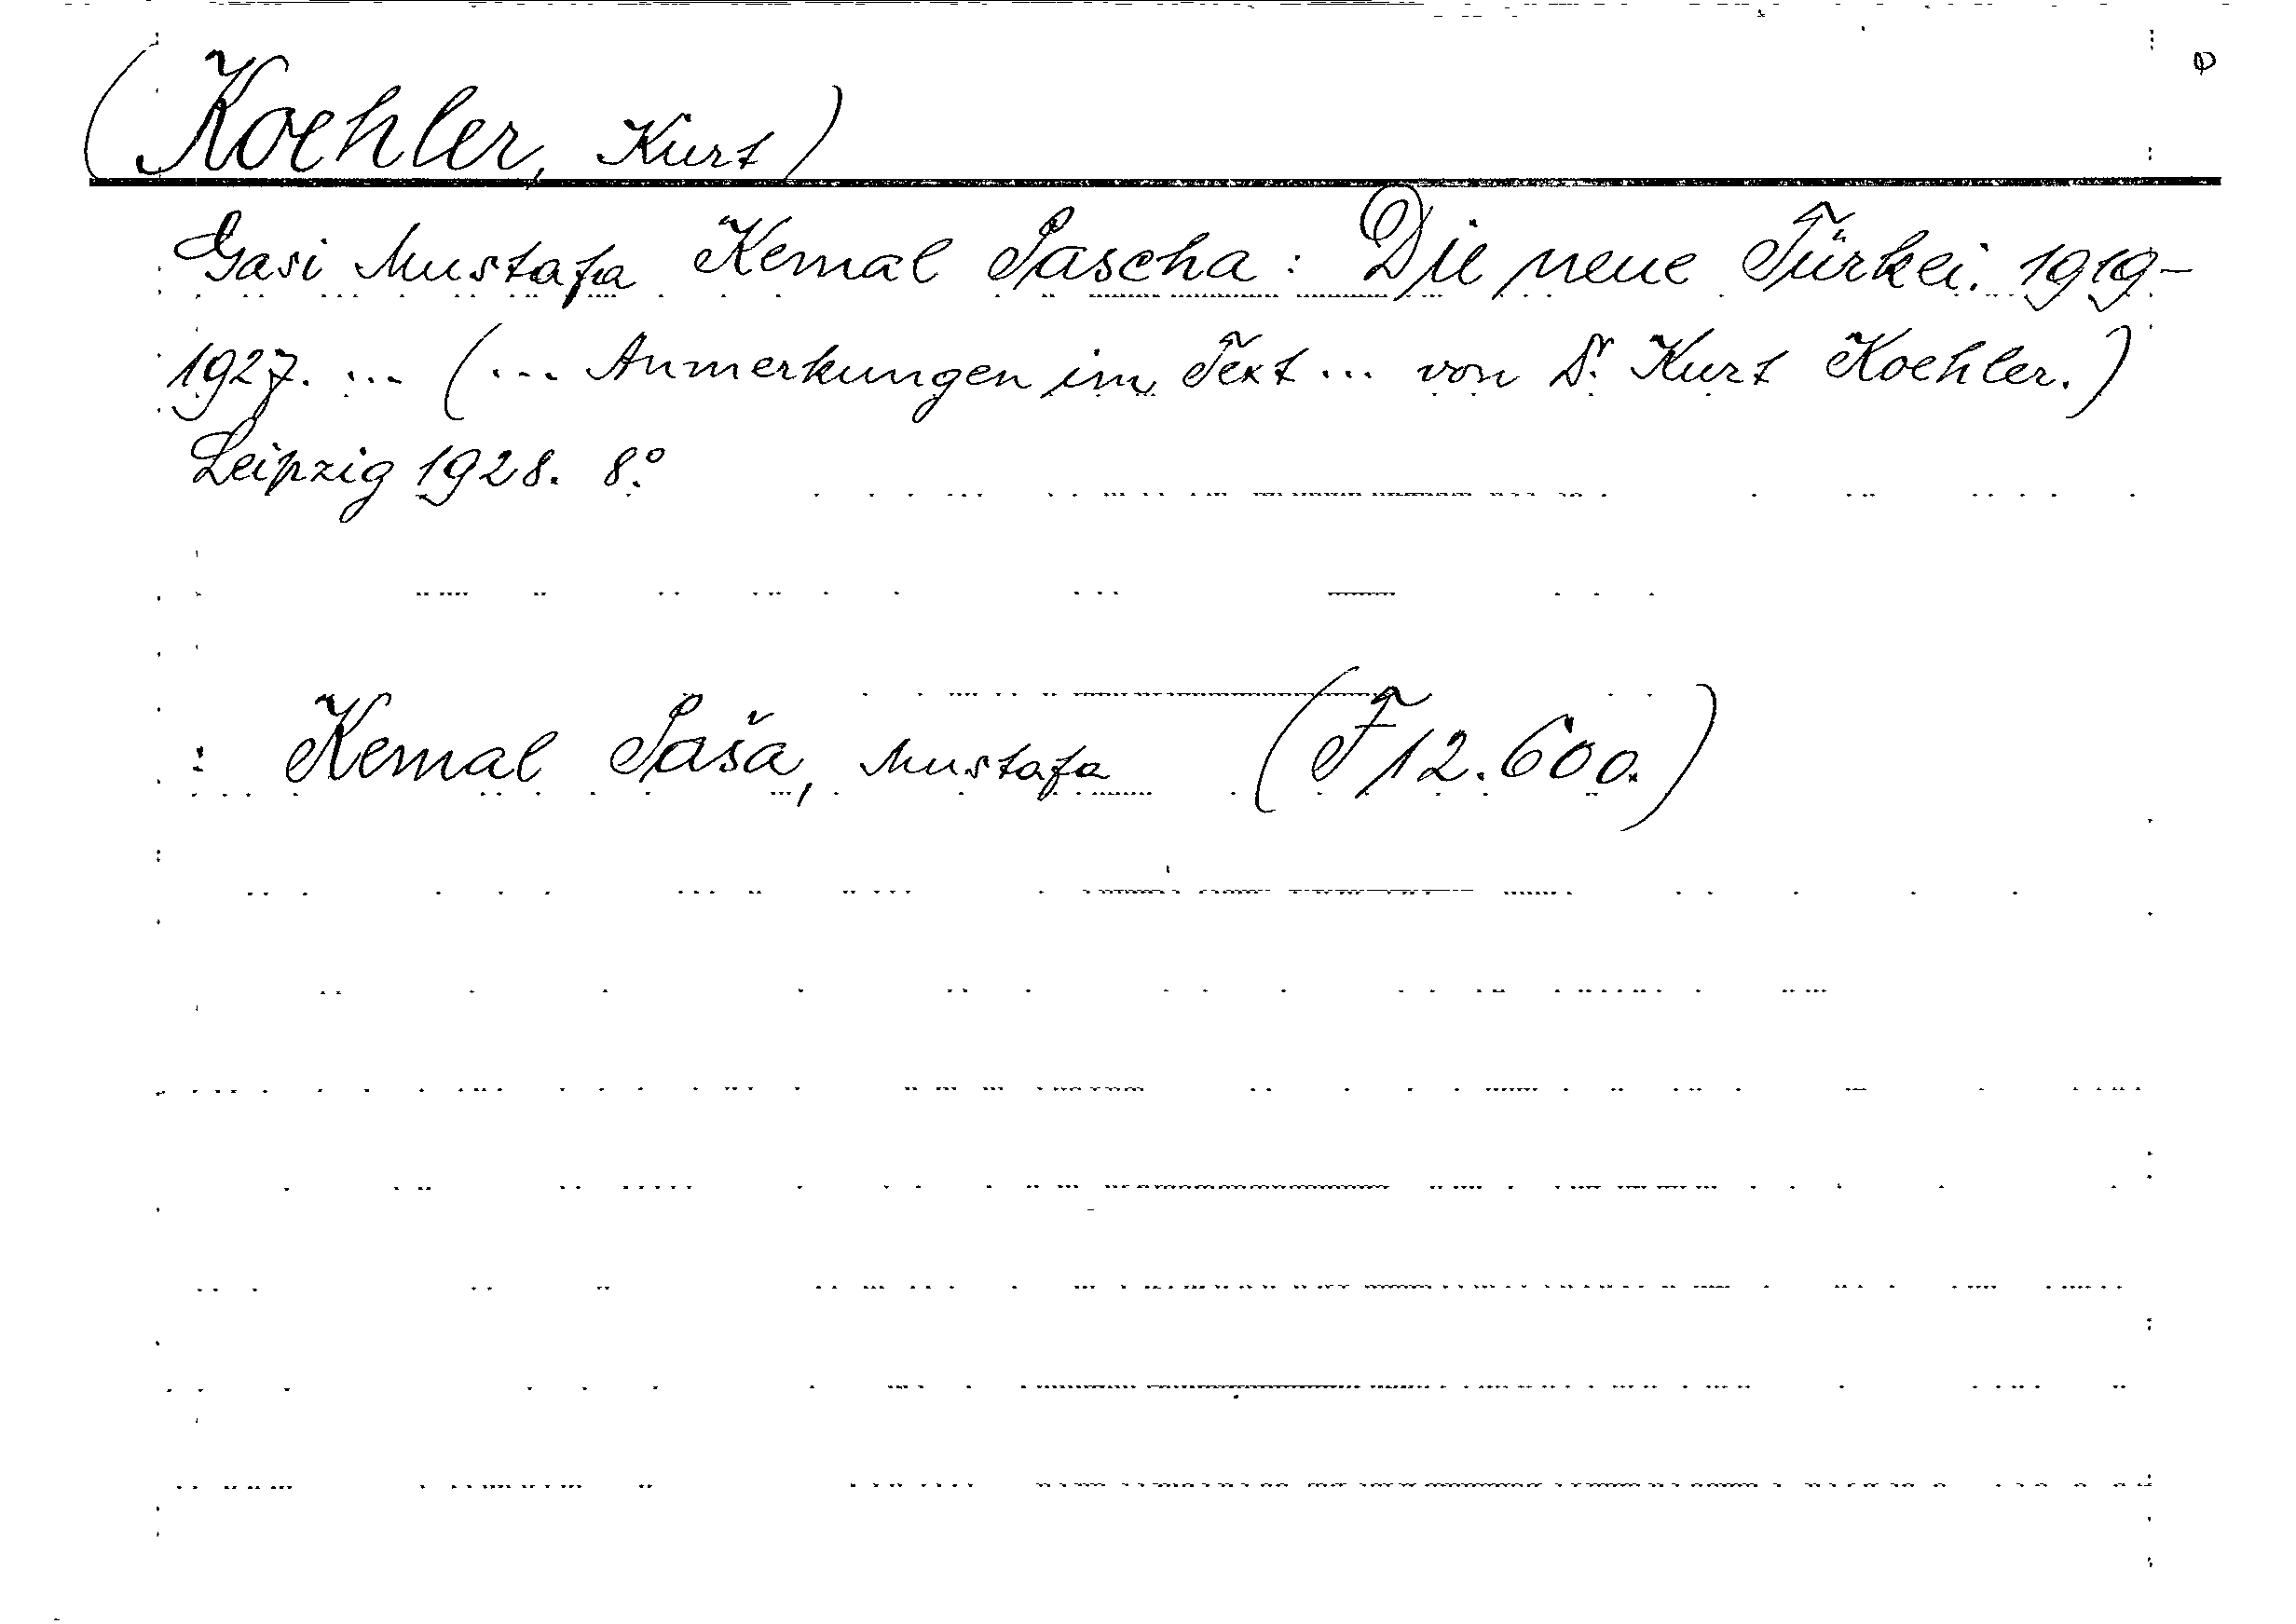 (Koehler, Kurt)
Gasi Mustafa Kemal Pascha: Die neue Türkei. 1919-
1927. ... (... Anmerkungen im Text ... von Dr. Kurt Koehler.)
Leipzig 1928. 8.°
: Kemal Paša, Mustafa (F 12.600.)